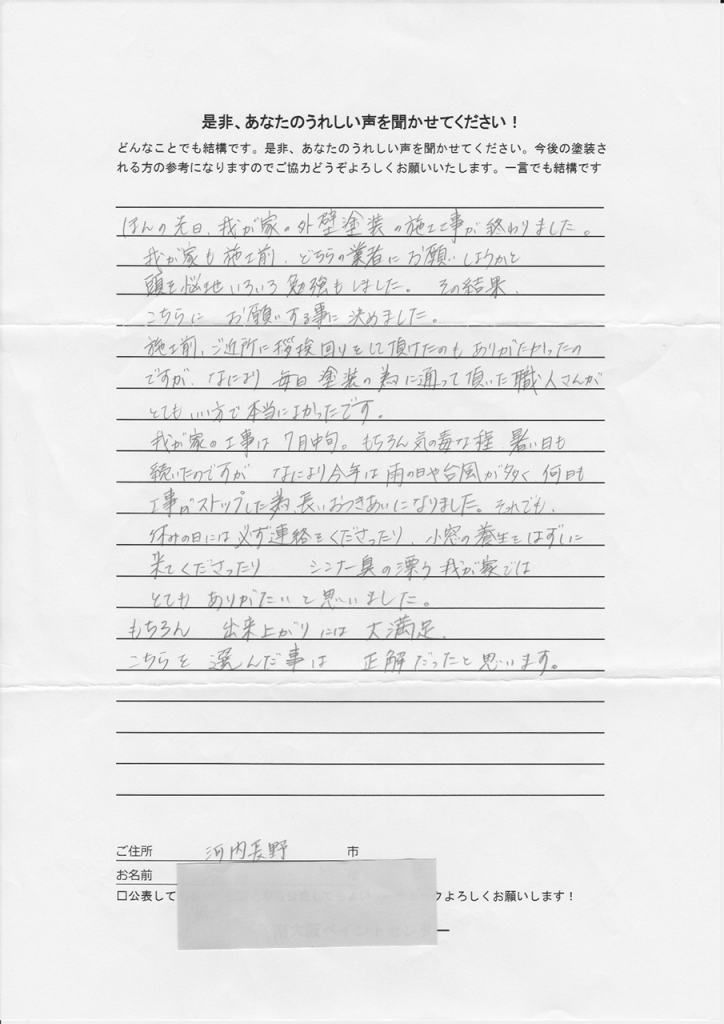 是非、あなたのうれしい声を聞かせてください！
どんなことでも結構です。是非、あなたのうれしい声を聞かせてください。今後の塗装さ
れる方の参考になりますのでご協力どうぞよろしくお願いいたします。一言でも結構です
ほんの先日、我が家の外壁塗装の施工工事が終わりました。
我が家も施工前、どちらの業者にお願いしようかと
頭を悩ませいろいろ勉強もしました。その結果、
こちらに お願いする事に決めました。
施工前、ご近所に挨拶回りをして頂けたのもありがたかったの
ですが、なにより毎日塗装の為に通って頂いた職人さんが
とてもいい方で本当によかったです。
我が家の工事は7月中旬。もちろん気の毒な程、暑い日も
続いたのですが なにより今年は雨の日や台風が多く 何日も
工事がストップした為、長いおつきあいになりました。それでも、
休みの日には必ず連絡をくださったり、小窓の養生をはずしに
来てくださったり シンナー臭の漂う我が家では
とても ありがたいと思いました。
もちろん 出来上がりには 大満足、
こちらを 選んだ事は 正解だったと思います。
ご住所 河内長野 市
お名前
□公表して よろしくお願いします！